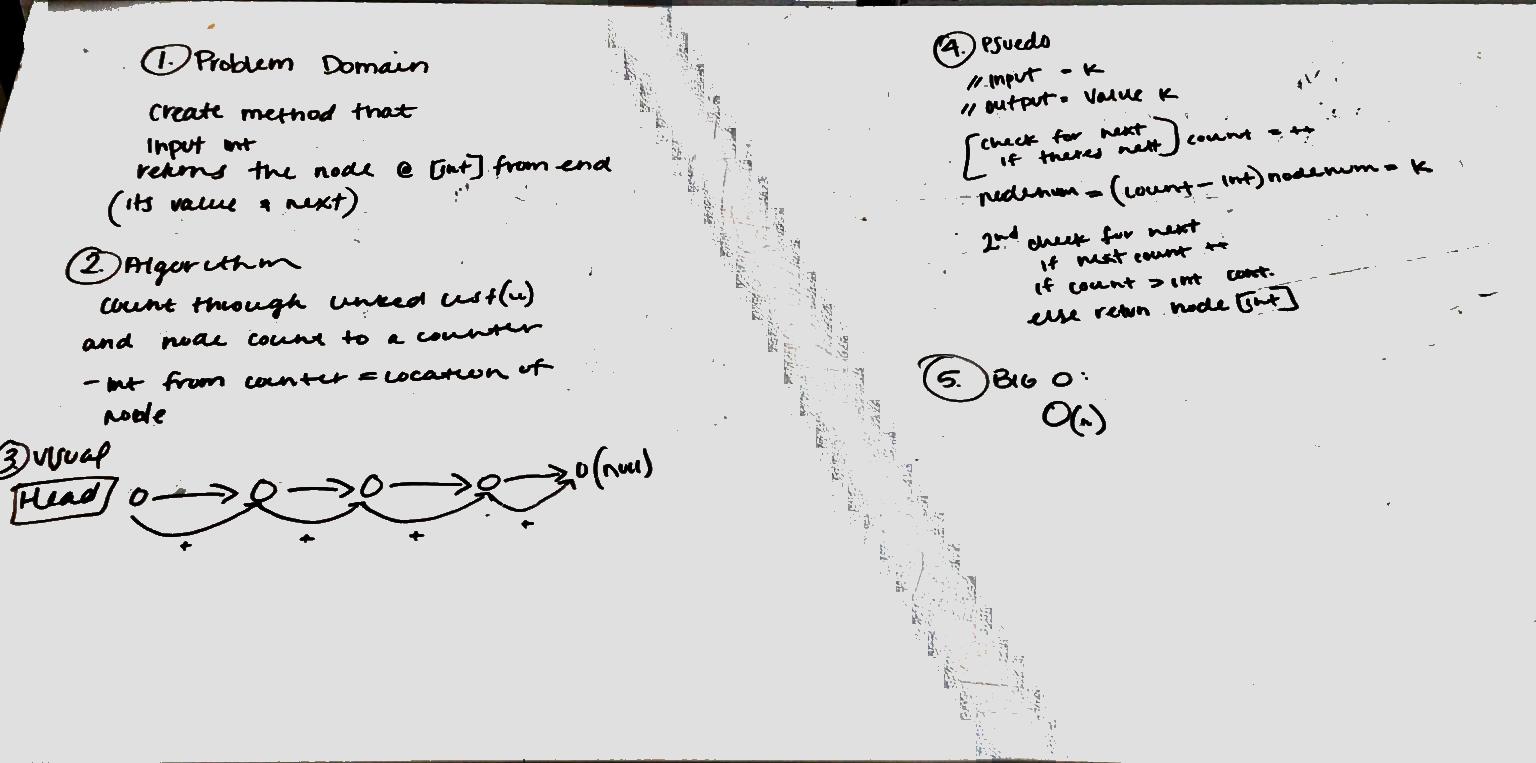 1. Problem Domain
Create method that
Input int
returns the node @ [int] from end
(its value & next)
2. Algorithm
count through linked list (ll)
and node count to a counter
- int from counter = location of
node
3 visual
Head O O O O O (null)
+ + + +
4. Psuedo
// input = k
// output = value k
[check for next
if theres next] count = ++
- nodenum = (count - int) nodenum = k
2nd check for next
if next count ++
if count > int cont.
else return node [int]
5. BIG O:
O(n)